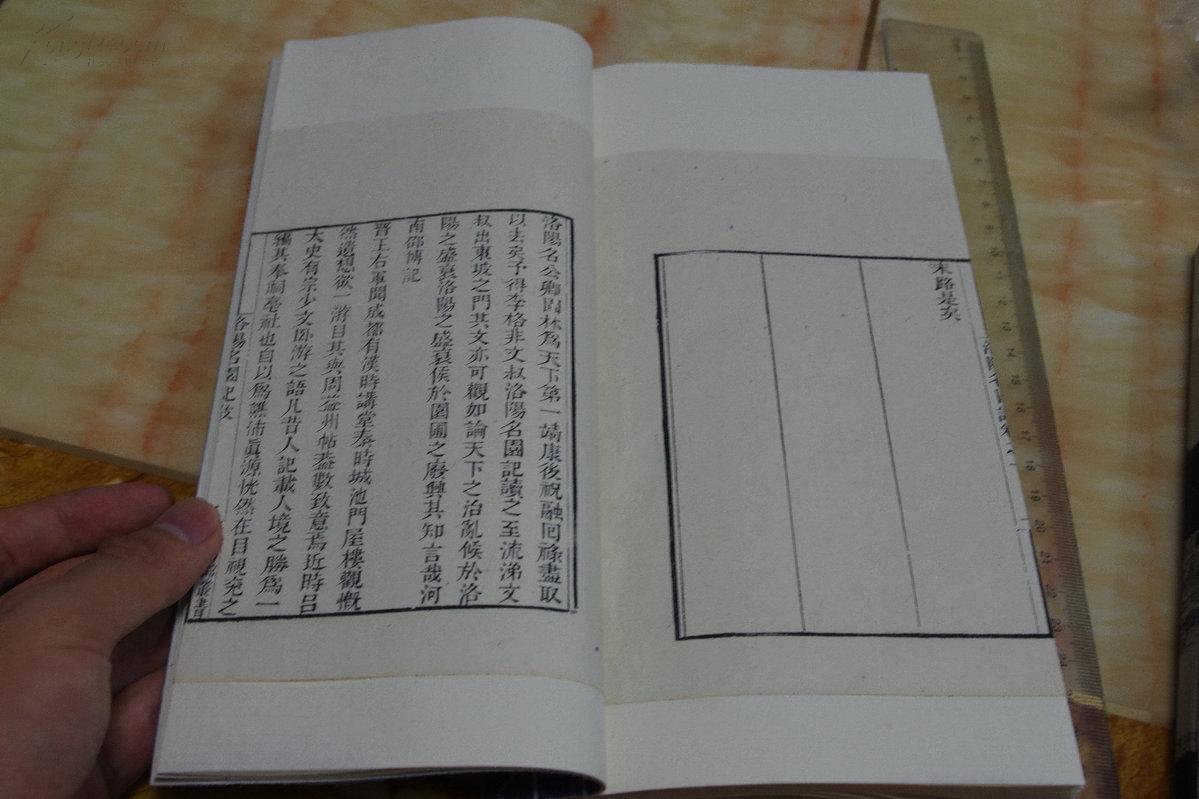 末路是矣
洛陽名公卿園林爲天下第一靖康後祝融回祿盡取
以去矣予得李格非文叔洛陽名園記讀之至流涕文
叔出東坡之門其文亦可觀如論天下之治亂候於洛
陽之盛衰洛陽之盛衰候於園圃之廢興其知言哉河
南邵博記
晉王右軍聞成都有漢時講堂秦時城池門屋樓觀慨
然遠想欲一游目其與周益州帖蓋數致意焉近時呂
太史有宗少文卧游之語凡昔人記載人境之勝爲一
編其奉祠亳社也自以爲譙沛眞源恍然在目視兖之
洛陽名園記跋